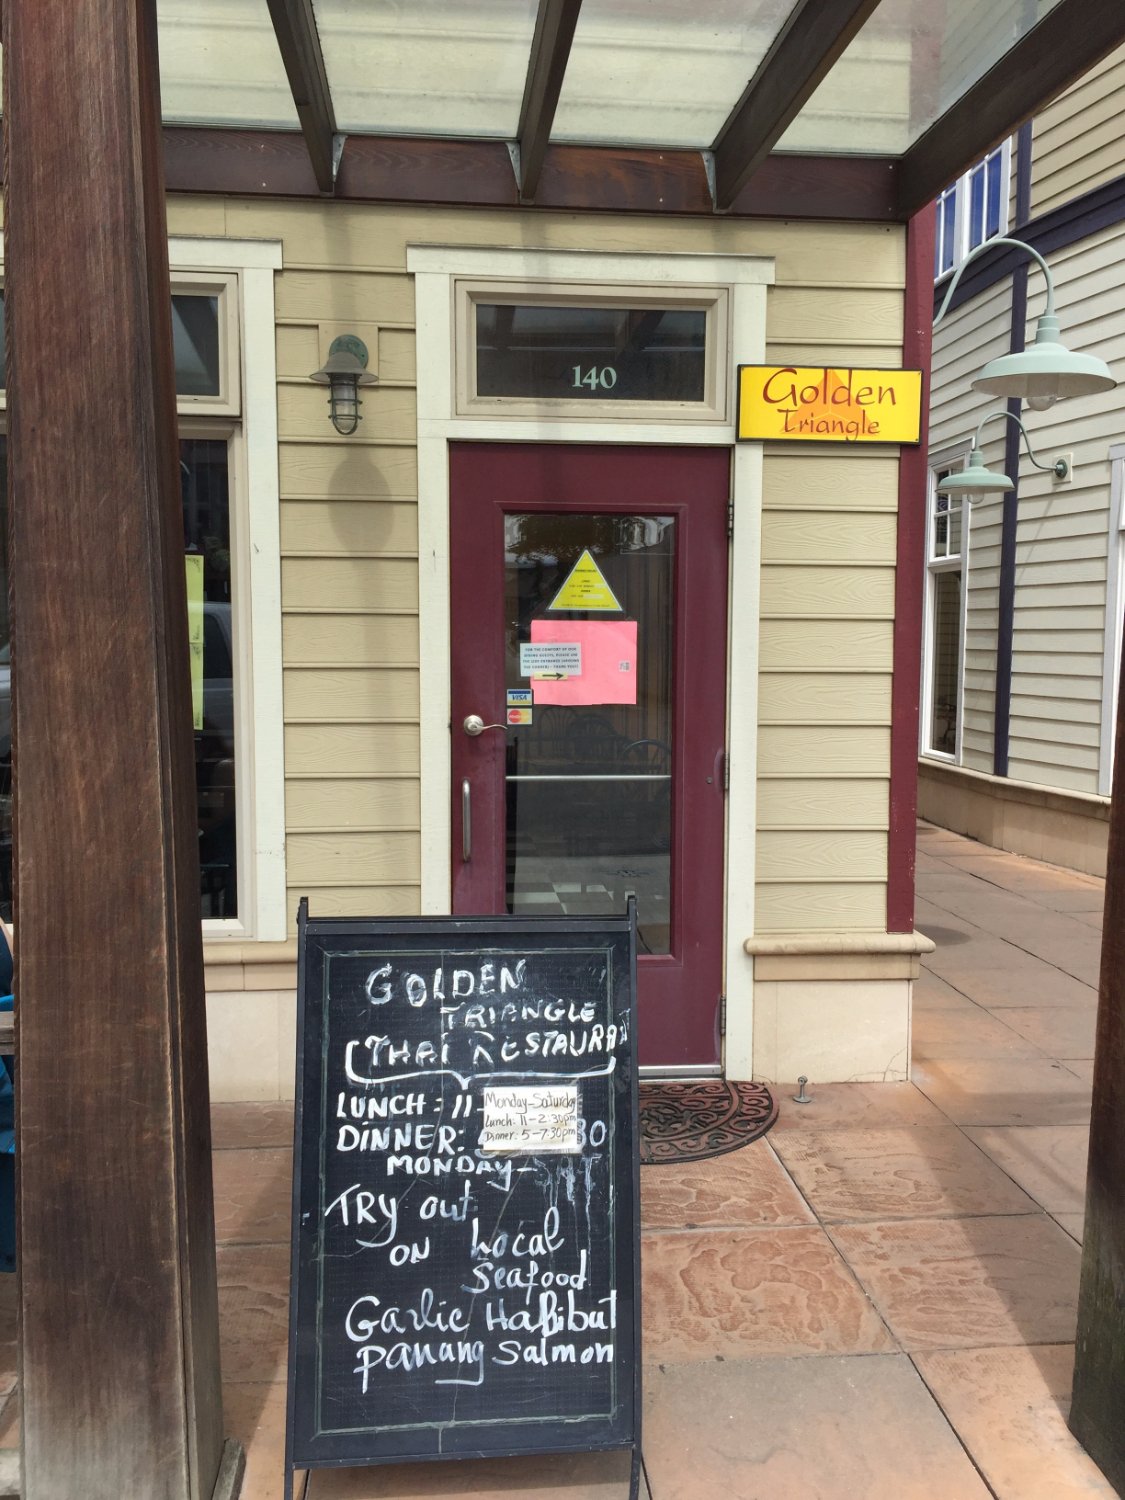 140
Golden
Triangle
FOR THE COMFORT OF OUR
DINING GUESTS, PLEASE USE
THE SIDE ENTRANCE (AROUND
THE CORNER) - THANK YOU!!
VISA
GOLDEN
TRIANGLE
(THAI RESTAURA
LUNCH: 11-
DINNER: 30
MONDAY-SAT
Monday-Saturday
Lunch: 11-2:30pm
Dinner: 5-7:30pm
TRY out
ON Local
Seafood
Garlic Halibut
Panang Salmon